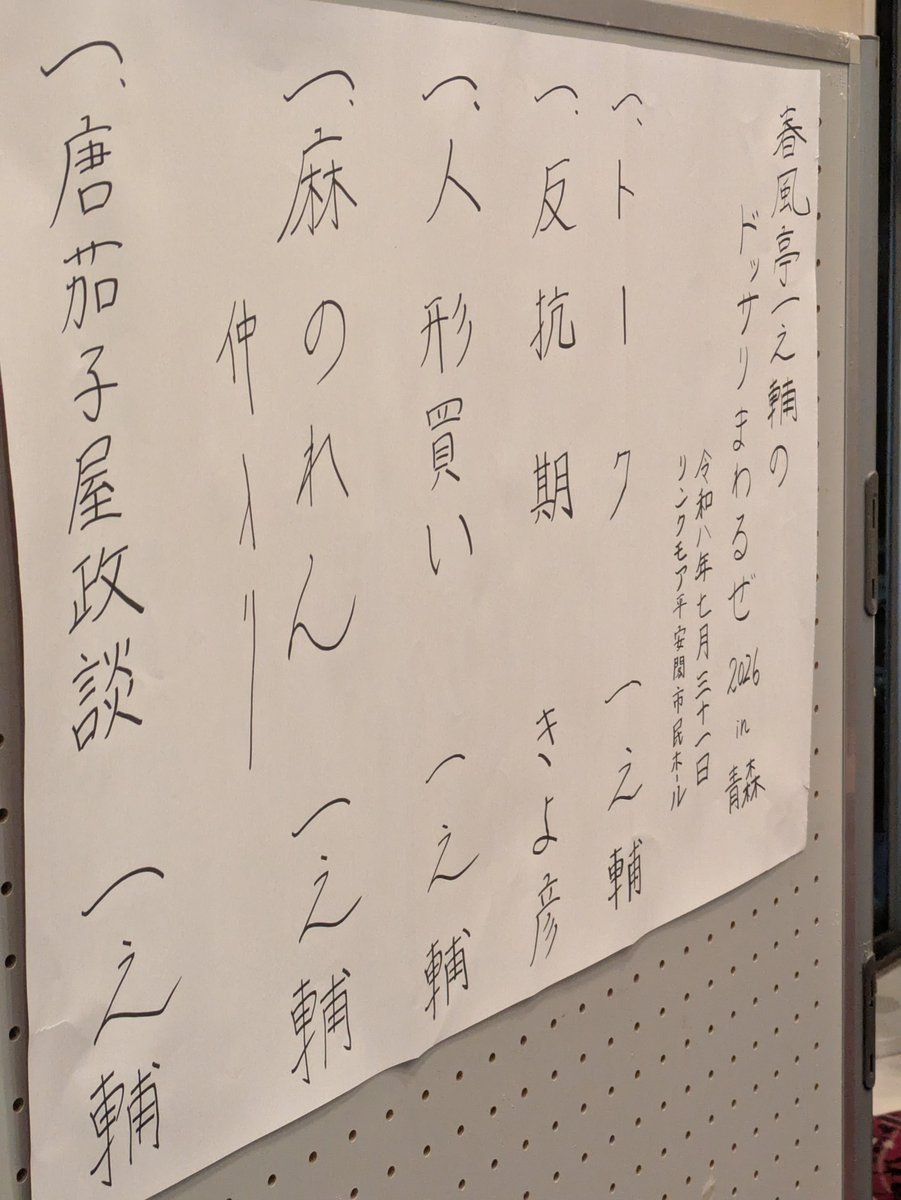 春風亭一之輔の
ドッサリまわるぜ 2026 in 青森
令和八年七月三十一日
リンクモア平安閣市民ホール
一、トーク 一之輔
一、反抗期 きよ彦
一、人形買い 一之輔
一、麻のれん 一之輔
仲入り
一、唐茄子屋政談 一之輔